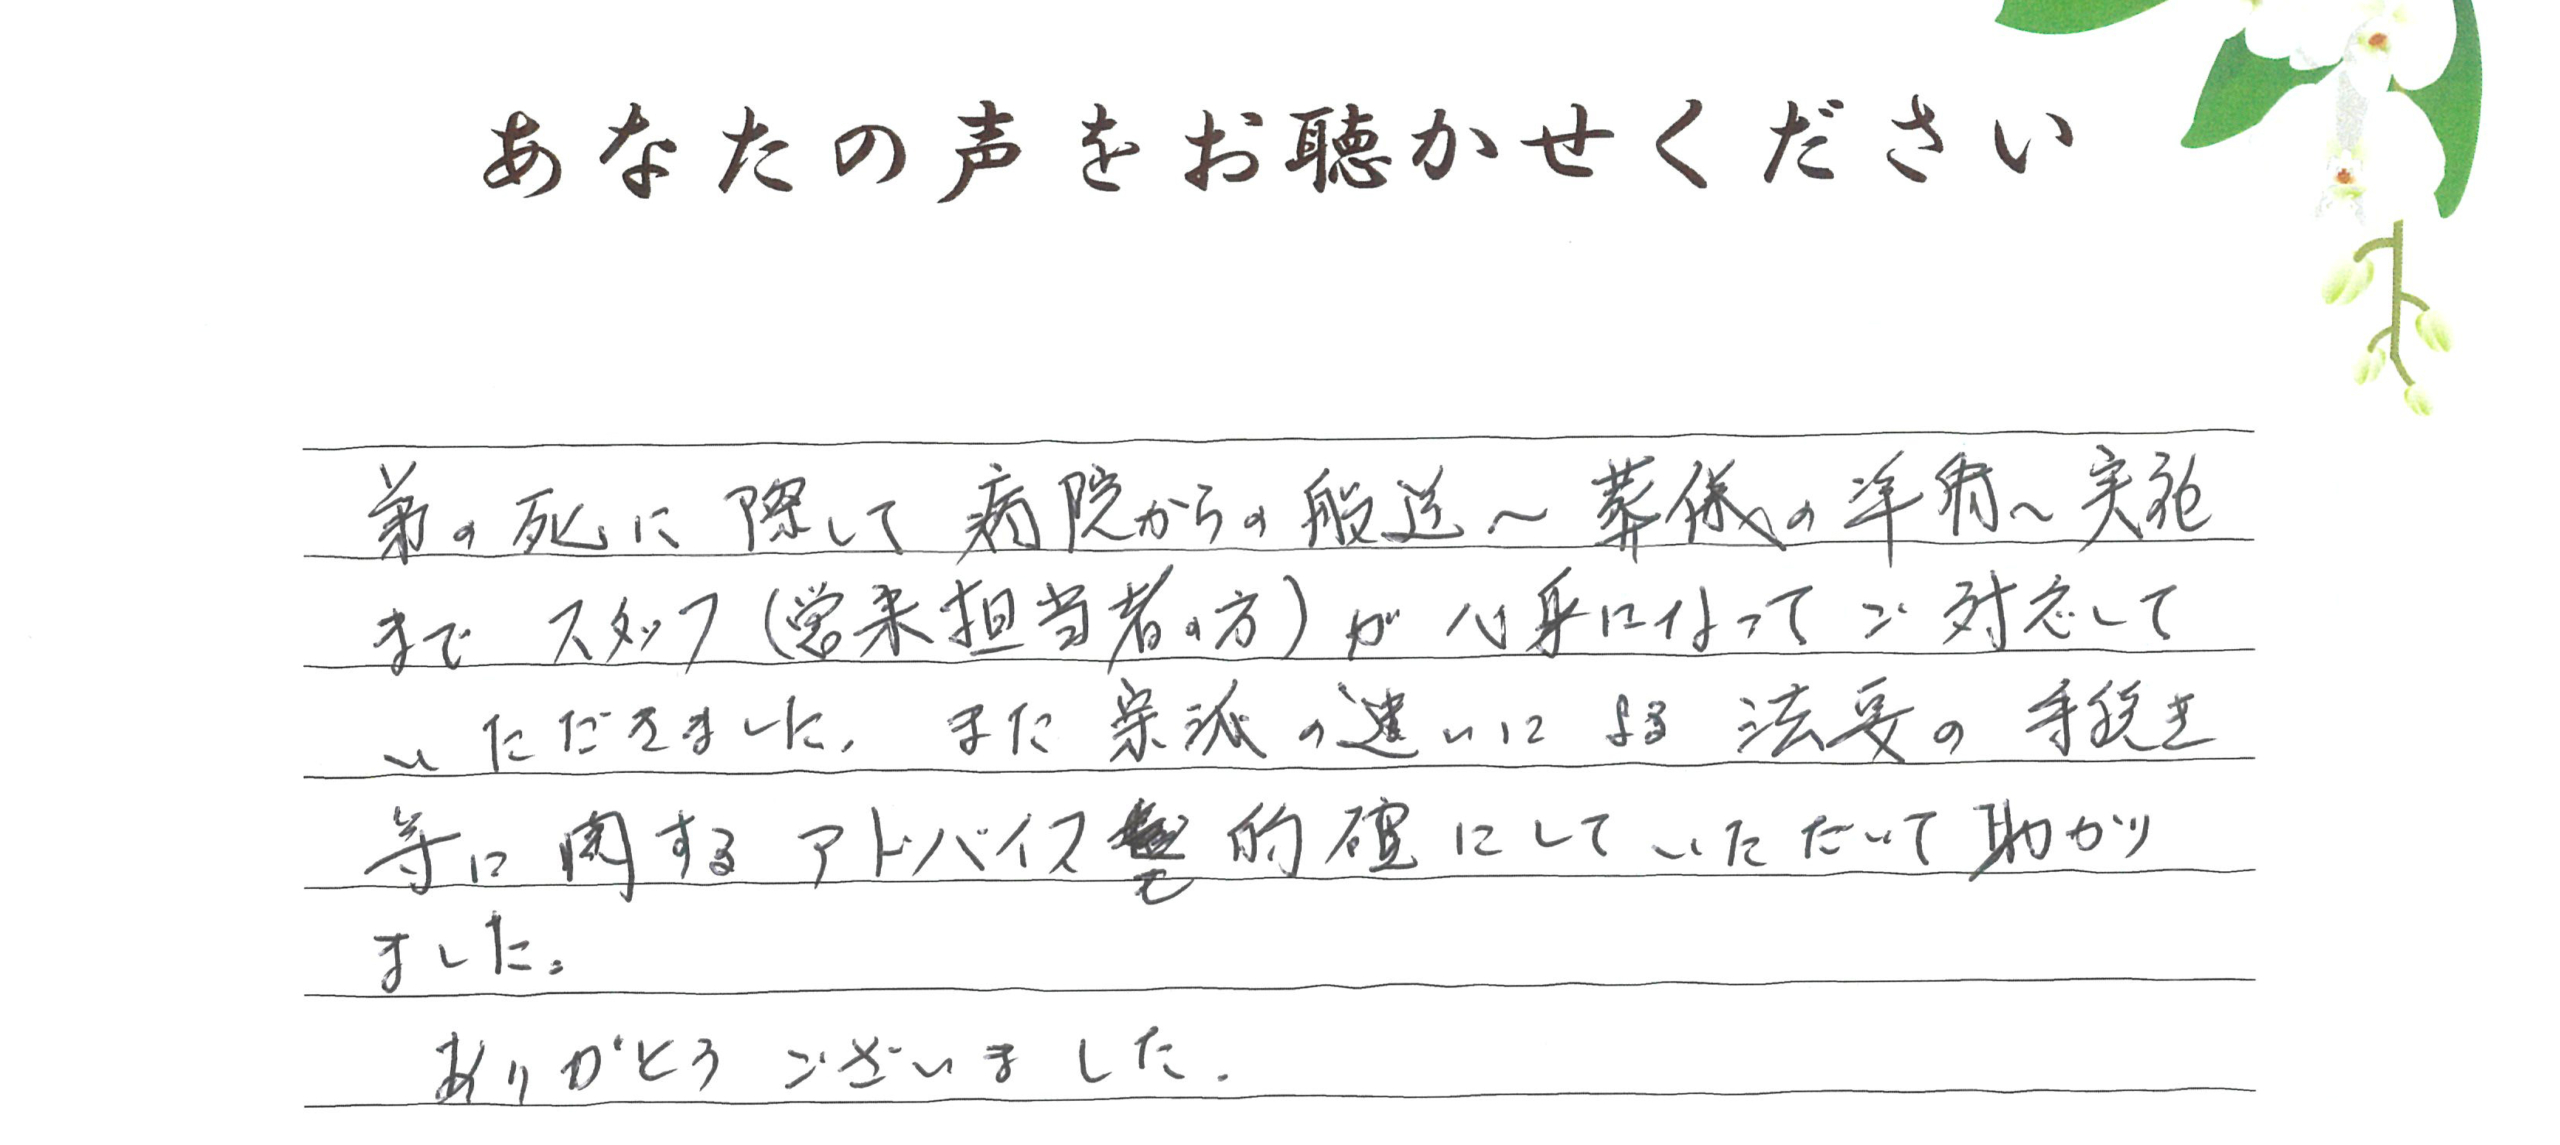 あなたの声をお聴かせください
弟の死に際して病院からの搬送～葬儀の準備～実施
までスタッフ(営業担当者の方)が心身になってご対応して
いただきました。また宗派の違いによる法要の手続き
等に関するアドバイスも的確にしていただいて助かり
ました。
ありがとうございました。